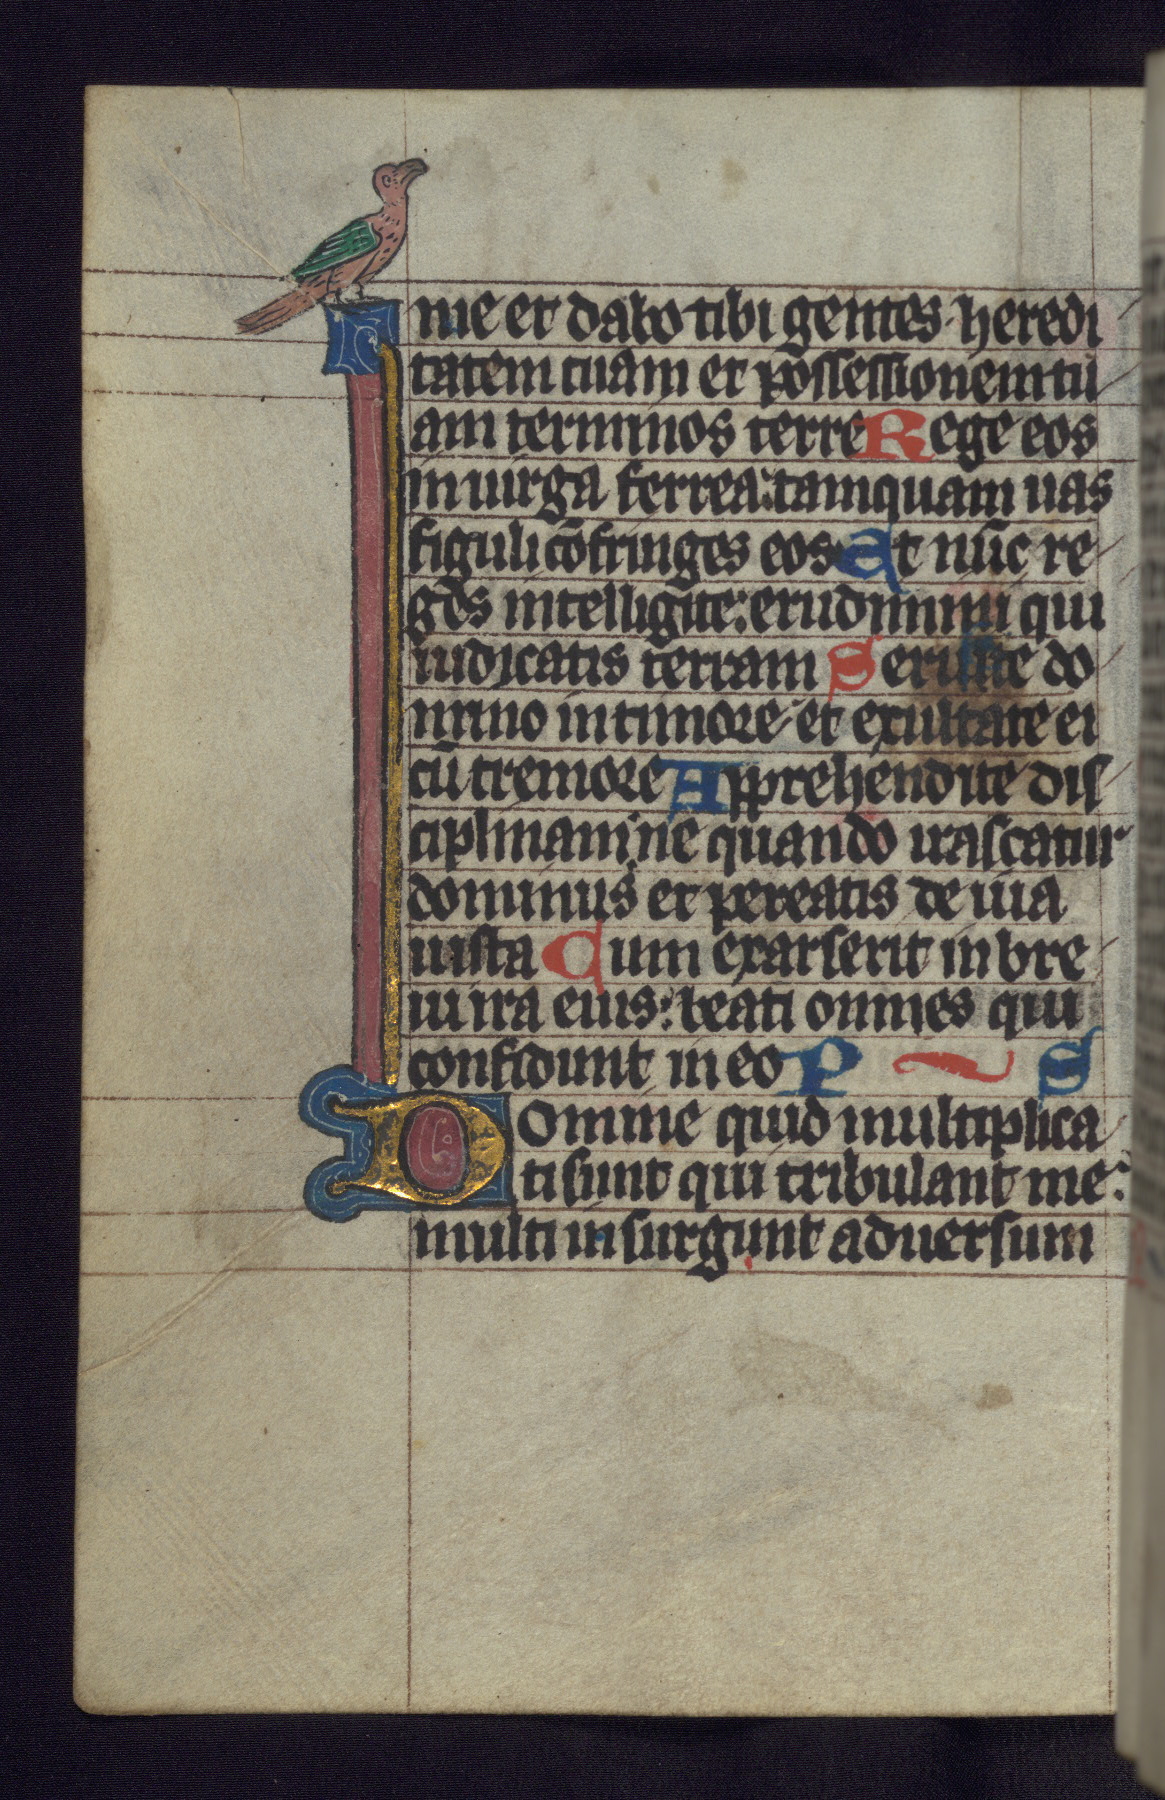 me et dabo tibi gentes heredi
tatem tuam et possessionem tu
am terminos terre Rege eos
in uirga ferrea: tamquam uas
figuli cōfringes eos At nūc re
ges intelligite: erudimini qui
iudicatis terram Seruite do
mino in timore et exultate ei
cū tremore Apprehendite dis
ciplinam ne quando irascatur
dominus et pereatis de uia
iusta Cum exarserit in bre
ui ira eius: beati omnes qui
confidunt in eo P S
Domine quid multiplica
ti sunt qui tribulant me:
multi insurgunt aduersum